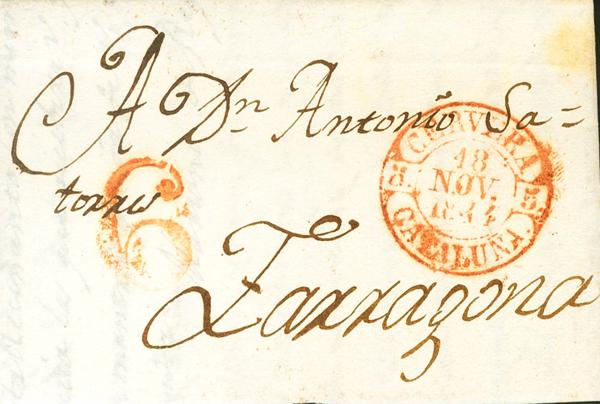 A Dn Antonio Sa=
torres
Tarragona
6
CERVERA
18
NOV.
1844
CATALUÑA